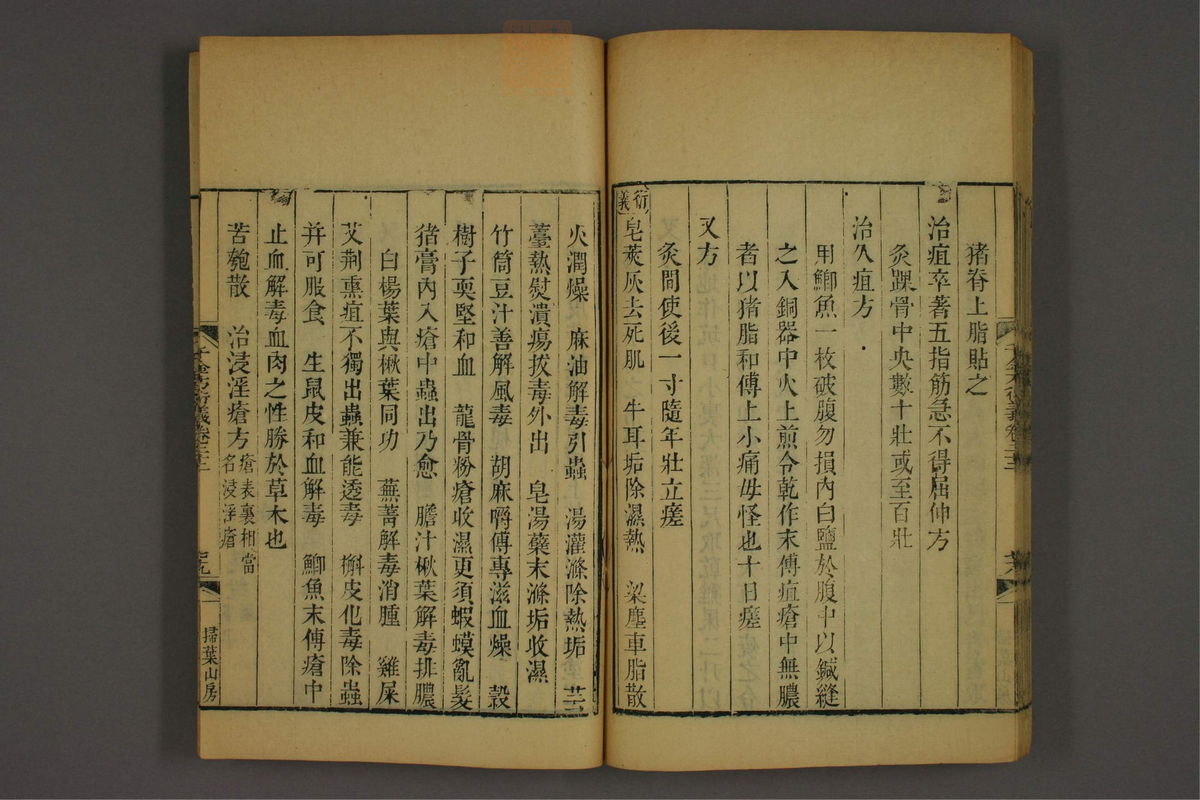 猪脊上脂貼之
治疽卒著五指筋急不得屈伸方
灸踝骨中央數十壯或至百壯
治久疽方
用鯽魚一枚破腹勿損內白鹽於腹中以鍼縫
之入銅器中火上煎令乾作末傅疽瘡中無膿
者以猪脂和傅上小痛毋怪也十日瘥
又方
灸間使後一寸隨年壯立瘥
衍義 皂莢灰去死肌 牛耳垢除濕熱 梁塵車脂散
火潤燥 麻油解毒引蟲 湯灌滌除熱垢 芸
薹熱熨潰瘍拔毒外出 皂湯藥末滌垢收濕
竹筒豆汁善解風毒 胡麻嚼傅專滋血燥 榖
樹子耎堅和血 龍骨粉瘡收濕更須蝦蟆亂髮
猪膏內入瘡中蟲出乃愈 膽汁楸葉解毒排膿
白楊葉與楸葉同功 蕪菁解毒消腫 雞屎
艾荆熏疽不獨出蟲兼能透毒 槲皮化毒除蟲
并可服食 生鼠皮和血解毒 鯽魚末傅瘡中
止血解毒血肉之性勝於草木也
苦瓠散 治浸淫瘡方 瘡表裏相當名浸淫瘡
千金方衍義卷二十二
掃葉山房